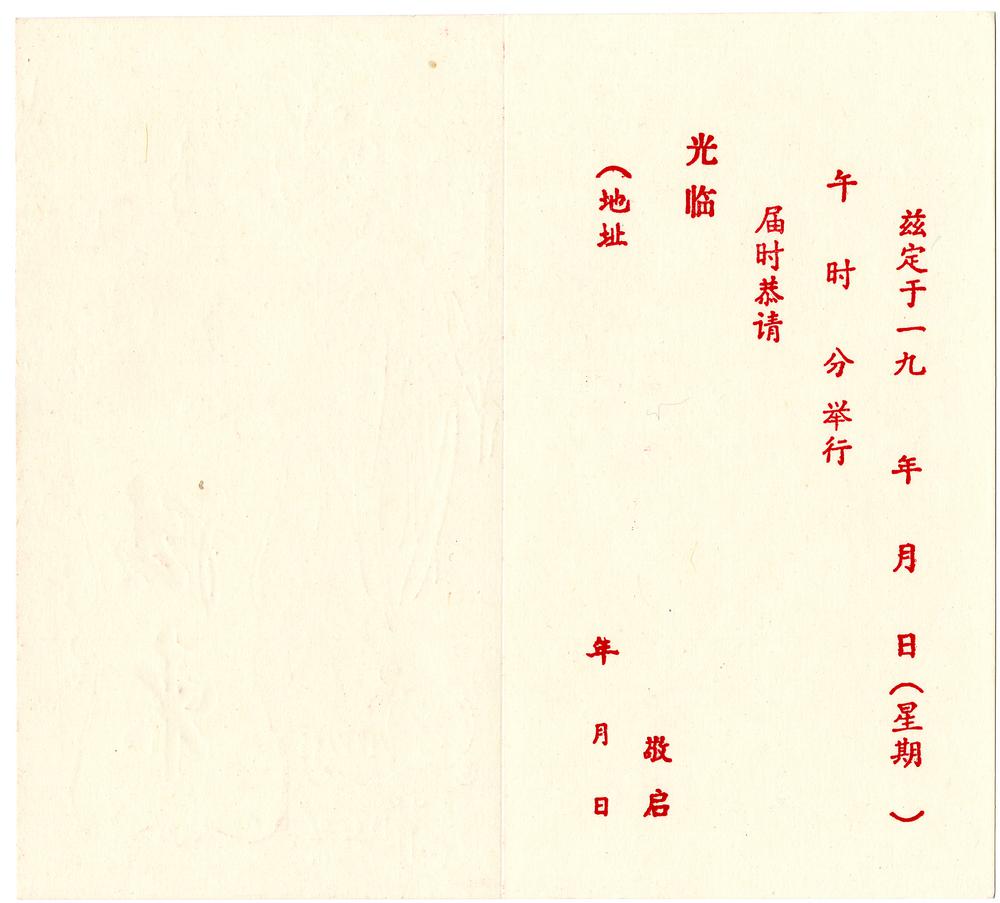 兹定于一九 年 月 日(星期 )
午 时 分举行
届时恭请
光临
敬启
(地址
年 月 日